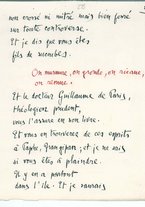 non crossé ni mitré mais bien ferré
sur toute controverse.
Et je dis que vous êtes
fils de
On murmure, on gronde, on ricane,
on
Et le docteur Guillaume de Paris,
théologien prudent,
vous l'assure en son livre.
Et vous en trouverez de ces esprits
à Paphe, Grangipan; et je ne sais
si vous êtes à plaindre.
Il y en a partout
dans l'île. Et je saurais